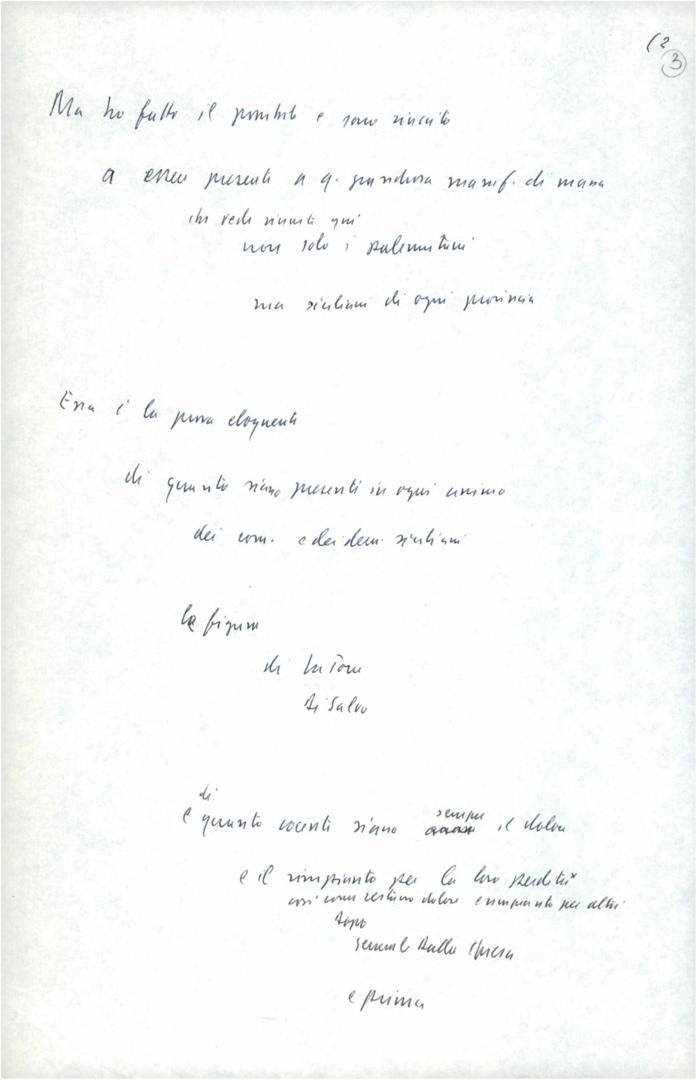 (2
3
Ma ho fatto il possibile e sono riuscito
a essere presente a q. grandiosa manif. di massa
che vede riuniti qui
non solo i palermitani
ma siciliani di ogni provincia
Essa è la prova eloquente
di quanto siano presenti in ogni animo
dei com. e dei dem. siciliani
la figura
di La Torre
Di Salvo
di
e quanto cocenti siano sempre il dolore
e il rimpianto per la loro perdita x
così come restano dolore e rimpianto per altri
dopo
generale Dalla Chiesa
e prima